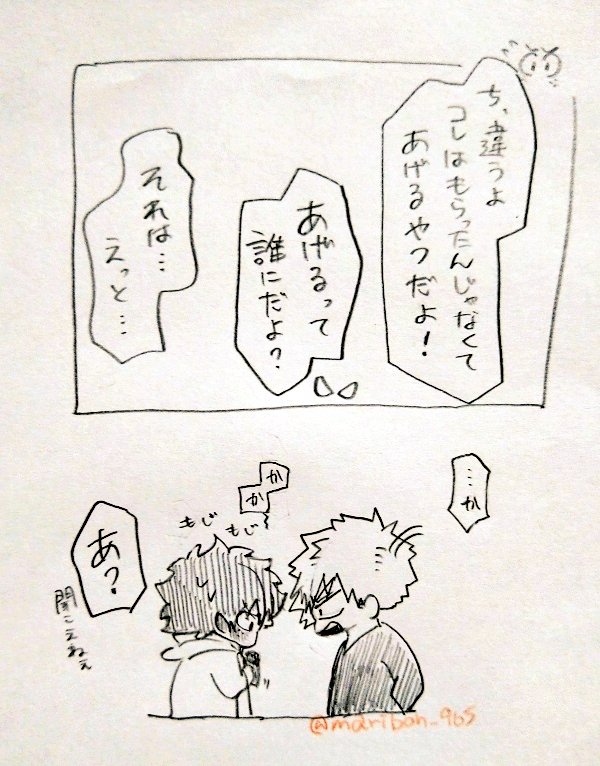 ち、違うよ
コレはもらったんじゃなくて
あげるやつだよ！
あげるって
誰にだよ？
それは…
えっと…
…か
か
か
もじ
もじ
あ？
聞こえねぇ
@mariban_965